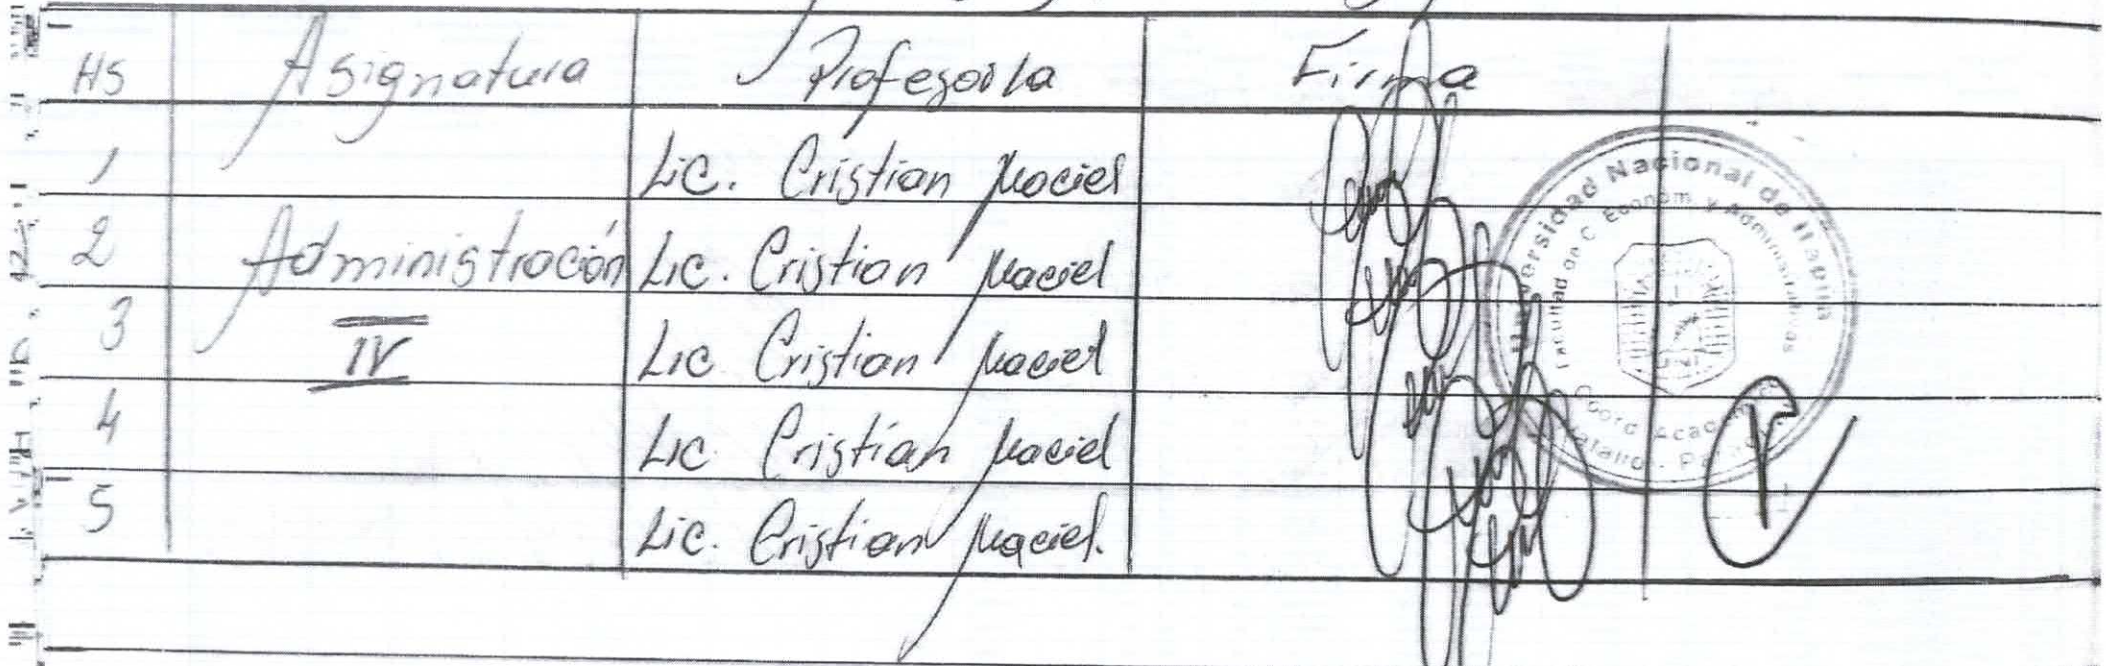 HS Asignatura Profesor/a Firma
1 Lic. Cristian Maciel
2 Administración Lic. Cristian Maciel
3 IV Lic Cristian Maciel
4 Lic Cristian Maciel
5 Lic. Cristian Maciel.
Universidad Nacional de Itapúa
Facultad de C. Econom. y Administrativas
Coord. Académica